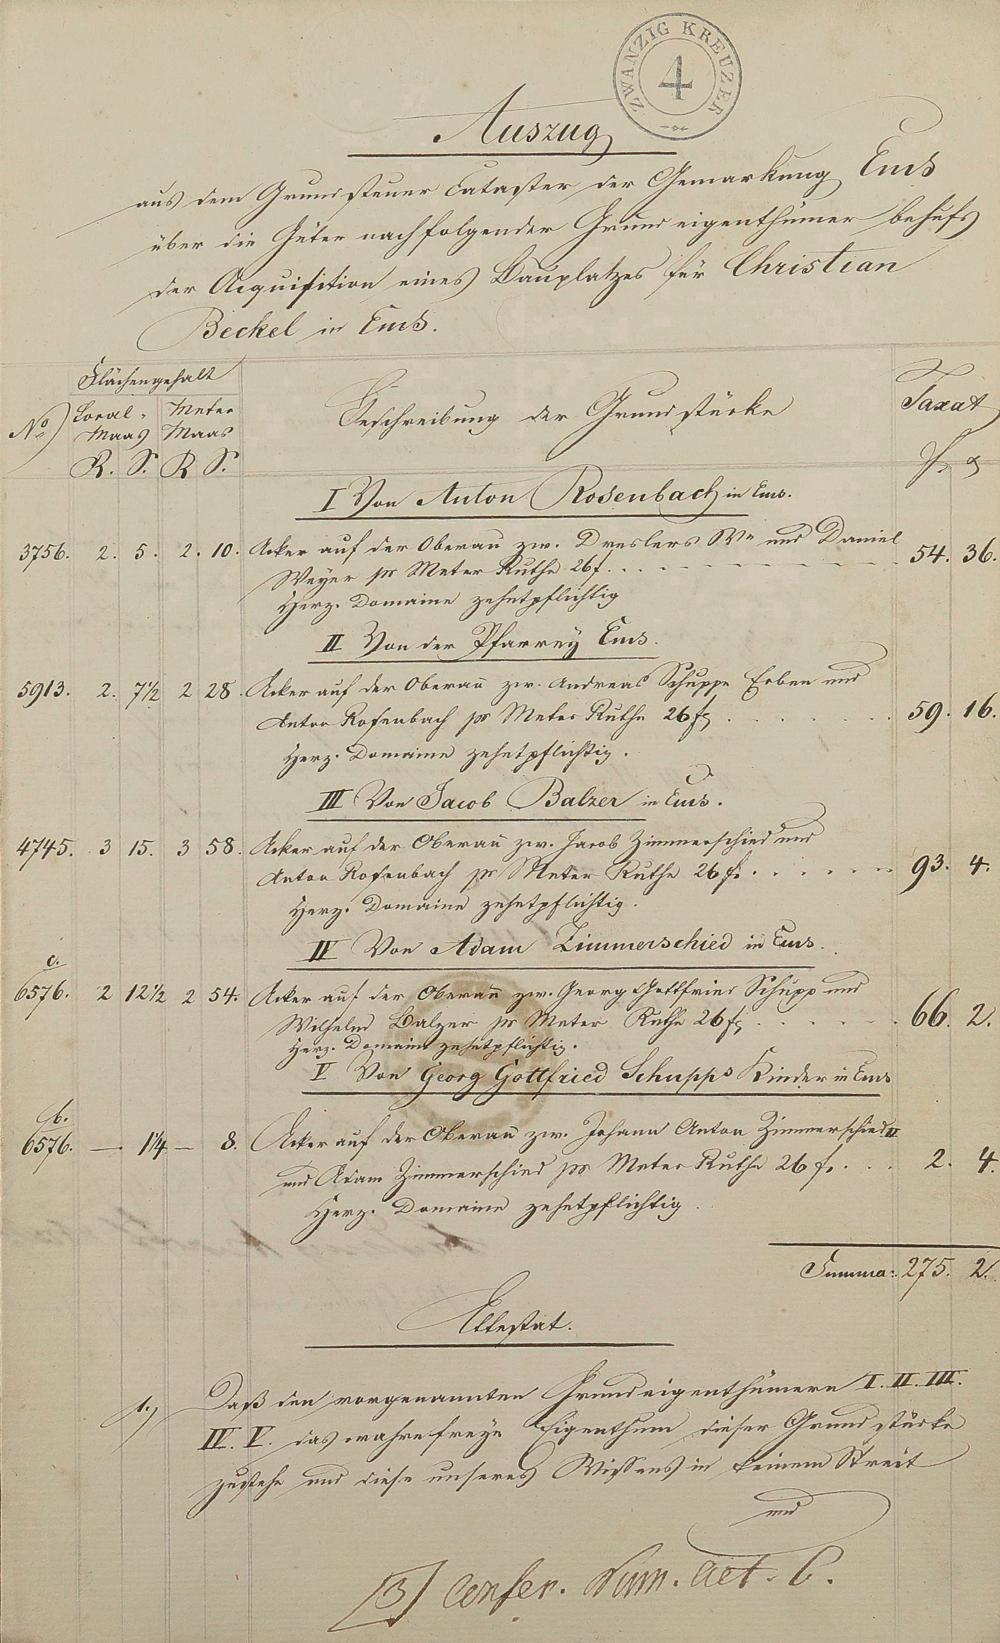 ZWANZIG KREUZER
4
Auszug
aus dem Grundsteuer Cataster der Gemarkung Ems
über die Güter nachfolgender Grundeigenthümer behufs
der Acquisition eines Bauplatzes für Christian
Beckel in Ems.
Flächengehalt
No Local- Maas Meter Maas Beschreibung der Grundstücke Taxat
R. S. R S. f x
I Von Anton Rosenbach in Ems.
3756. 2. 5. 2. 10. Acker auf der Oberau zw. Dreslers We und Daniel
Weyer pr Meter Ruthe 26 f. 54. 36.
Herz. Domaine zehntpflichtig
II Von der Pfarrey Ems.
5913. 2. 7½ 2 28. Acker auf der Oberau zw. Andreas Schupp Erben und
Anton Rosenbach pr Meter Ruthe 26 f 59. 16.
Herz. Domaine zehntpflichtig.
III Von Jacob Balzer in Ems.
4745. 3 15. 3 58. Acker auf der Oberau zw. Jacob Zimmerschied und
Anton Rosenbach pr Meter Ruthe 26 f. 93. 4.
Herz. Domaine zehntpflichtig.
IV Von Adam Zimmerschied in Ems.
c.
6576. 2 12½ 2 54. Acker auf der Oberau zw. Georg Gottfried Schupp und
Wilhelm Balzer pr Meter Ruthe 26 f 66. 2.
Herz. Domaine zehntpflichtig.
V Von Georg Gottfried Schupps Kinder in Ems
b.
6576. — 1¼ — 8. Acker auf der Oberau zw. Johann Anton Zimmerschied II
und Adam Zimmerschied pr Meter Ruthe 26 f. 2. 4.
Herz. Domaine zehntpflichtig
Summa: 275. 2.
Attestat.
1.) Daß den vorgenannten Grundeigenthümern I. II. III.
IV. V. das wahre freye Eigenthum dieser Grundstücke
zustehe und diese unseres Wissens in keinem Streit
und
[3] Confer. Num. act. 6.